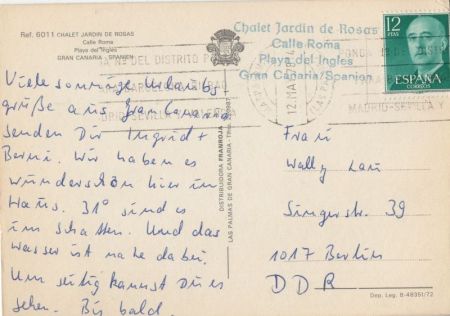 Ref. 6011 CHALET JARDIN DE ROSAS
Calle Roma
Playa del Ingles
GRAN CANARIA - SPANIEN
Viele sonnige Urlaubs
grüße aus Gran Canaria
senden Dir Ingrid +
Berni. Wir haben es
wunderschön hier im
Haus. 31° sind es
im Schatten. Und das
Wasser ist nahe dabei.
Umseitig kannst Du es
sehen. Bis bald.
DISTRIBUIDORA FRANROJA
LAS PALMAS DE GRAN CANARIA
Chalet Jardin de Rosas
Calle Roma
Playa del Ingles
Gran Canaria/Spanien
12 PTA
ESPAÑA
CORREOS
12.MAR
MADRID-SEVILLA Y
Frau
Wally Lau
Singerstr. 39
1017 Berlin
DDR
Dep. Leg. B-48351/72